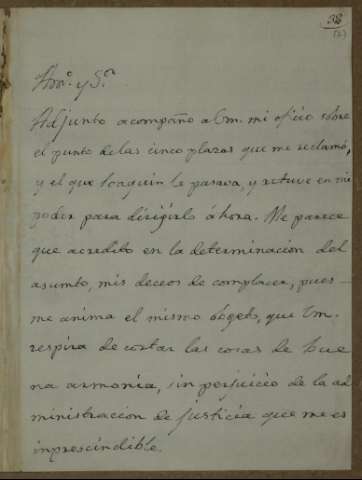 38
(2)
Am.º y S.or
Adjunto acompaño a Vm. mi oficio sobre
el punto de las cinco plazas que me reclamó,
y el que Joaquin le pasava, y retuve en mi
poder para dirigirlo áhora. Me parece
que acredito en la determinacion del
asumto, mis deceos de complacer, pues
me anima el mismo óbgeto, que Vm.
respira de cortar las cosas de bue
na armonia, sin perjuicio de la ad
ministraccion de justicia que me es
inprescindible.